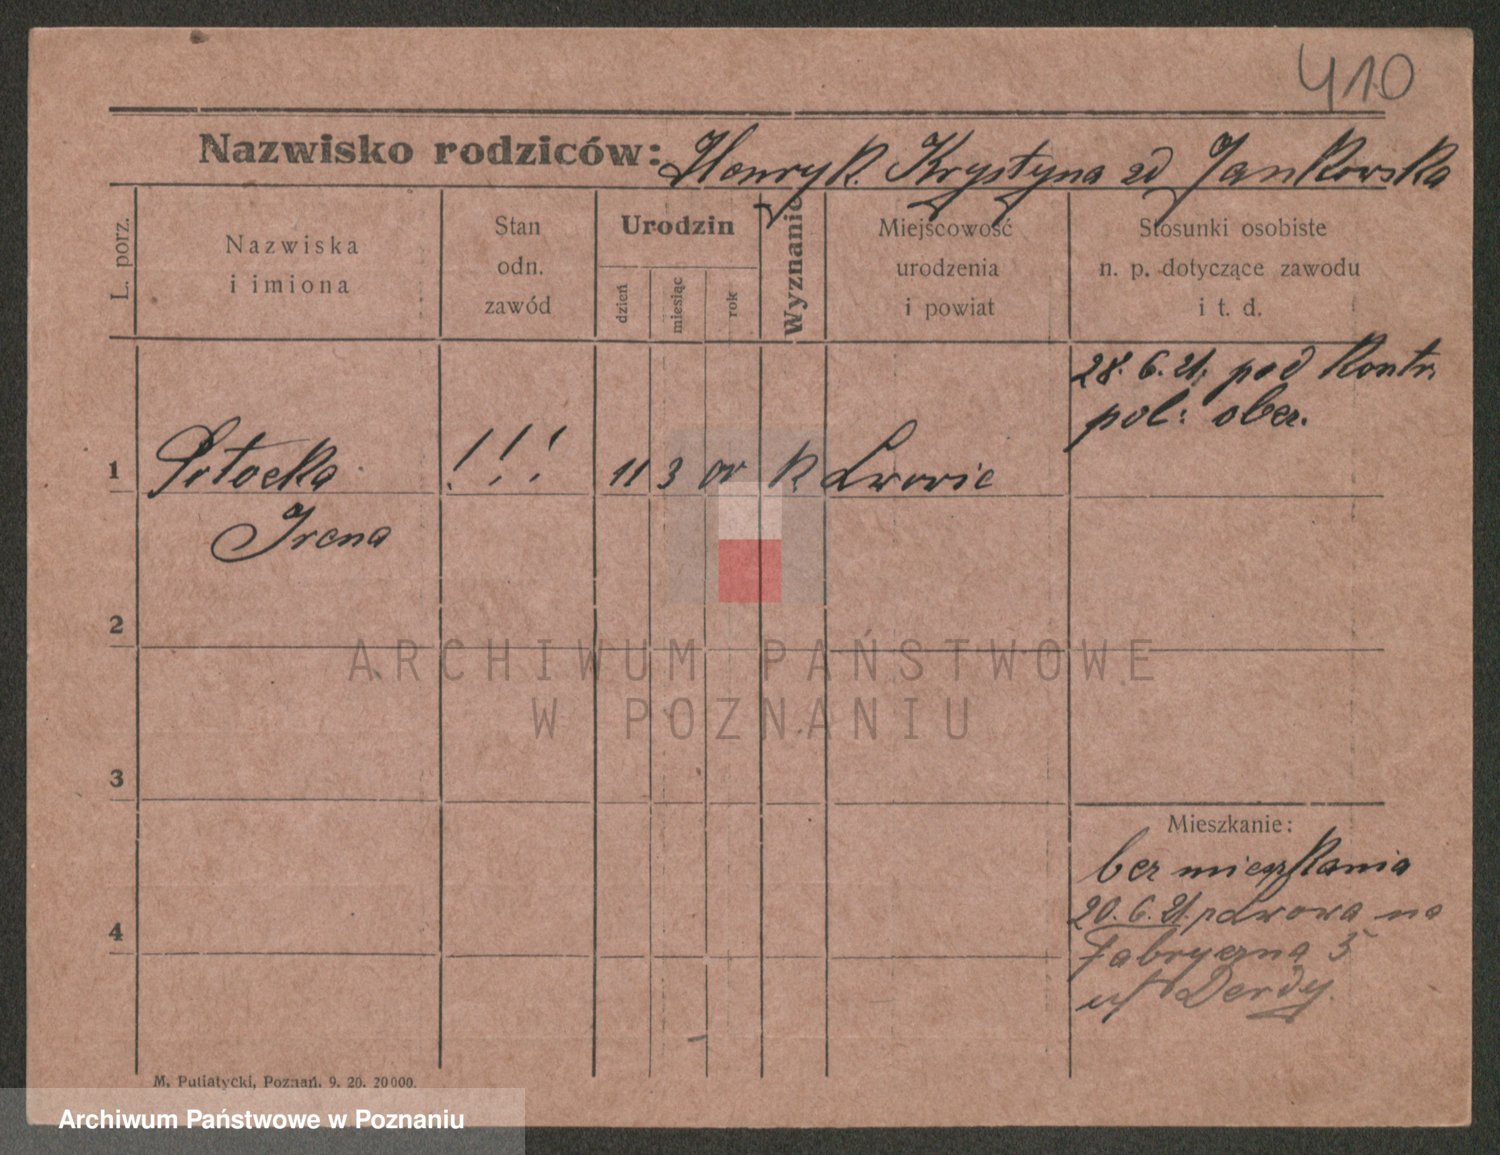 410
Nazwisko rodziców: Henryk. Krystyna zd Jankowska
L. porz.
Nazwiska
i imiona
Stan
odn.
zawód
Urodzin
dzień
miesiąc
rok
Wyznanie
Miejscowość
urodzenia
i powiat
Stosunki osobiste
n. p. dotyczące zawodu
i t. d.
28. 6. 21. pod Kontr.
pol: ober.
1 Potocka !!! 11 3 K Lwowie
Irena
2
ARCHIWUM PAŃSTWOWE
W POZNANIU
3
Mieszkanie:
bez mieszkania
20. 6. 21. Lwowa na
4
Fabryczna 5
u Derdy.
M. Putiatycki, Poznań. 9. 20. 20000.
Archiwum Państwowe w Poznaniu